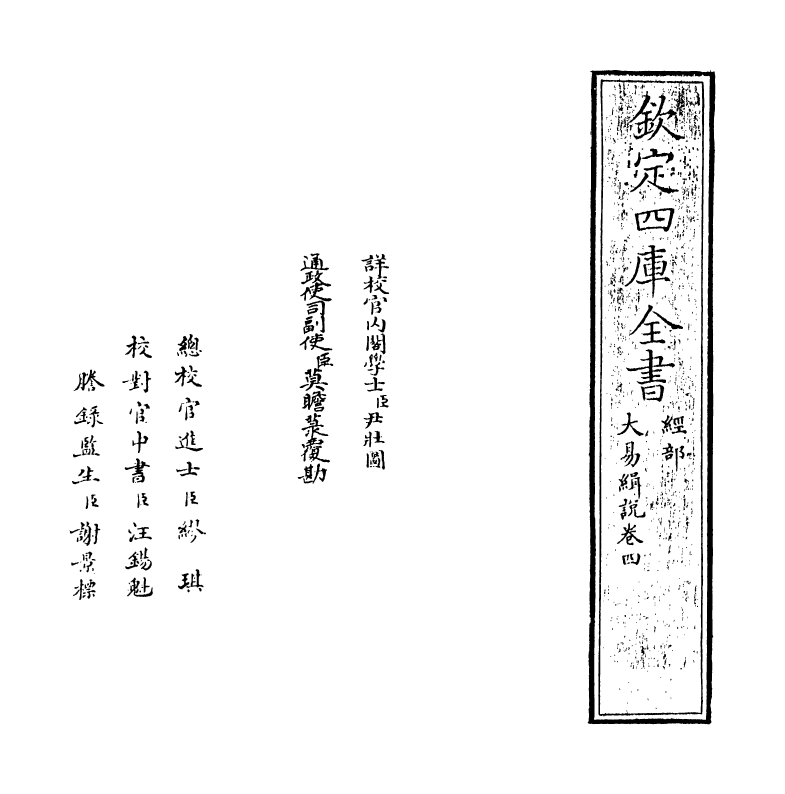 欽定四庫全書
經部
大易緝說卷四
詳校官內閣學士臣尹壯圖
通政使司副使臣莫瞻菉覆勘
總校官進士臣繆琪
校對官中書臣汪錫魁
謄錄監生臣謝景標